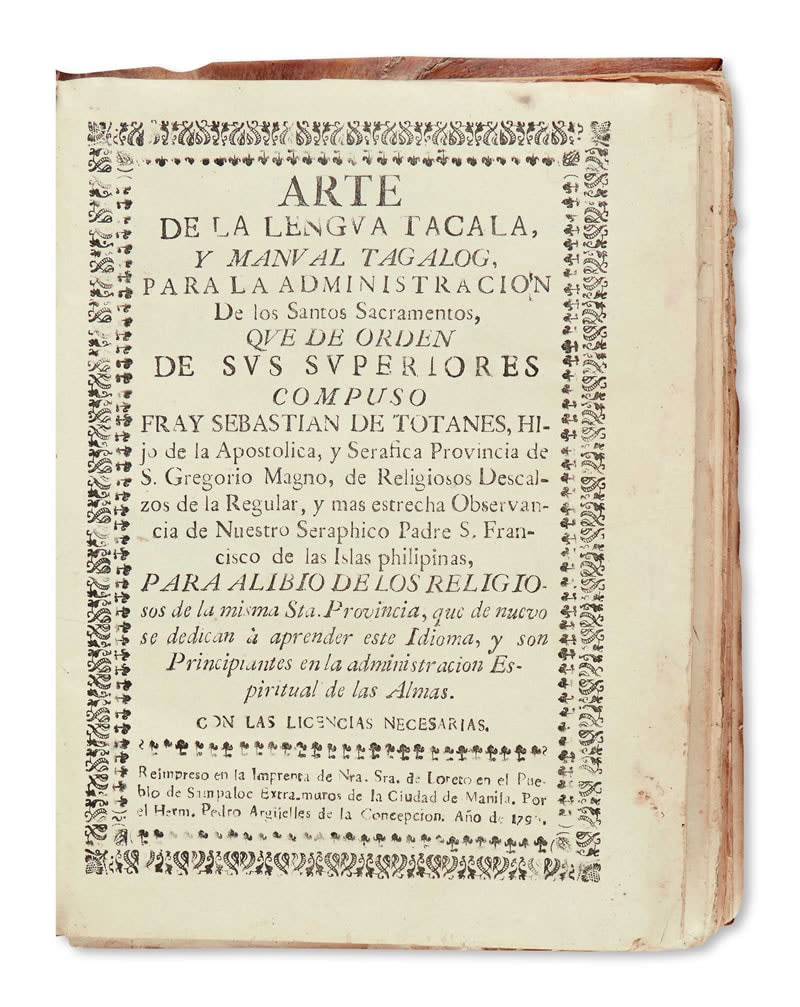 ARTE
DE LA LENGVA TAGALA,
Y MANVAL TAGALOG,
PARA LA ADMINISTRACION
De los Santos Sacramentos,
QVE DE ORDEN
DE SVS SVPERIORES
COMPUSO
FRAY SEBASTIAN DE TOTANES, HI-
jo de la Apostolica, y Serafica Provincia de
S. Gregorio Magno, de Religiosos Descal-
zos de la Regular, y mas estrecha Observan-
cia de Nuestro Seraphico Padre S. Fran-
cisco de las Islas philipinas,
PARA ALIBIO DE LOS RELIGIO-
sos de la misma Sta. Provincia, que de nuevo
se dedican à aprender este Idioma, y son
Principiantes en la administracion Es-
piritual de las Almas.
CON LAS LICENCIAS NECESARIAS.
Reimpreso en la Imprenta de Nra. Sra. de Loreto en el Pue-
blo de Sampaloc Extra-muros de la Ciudad de Manila. Por
el Herm. Pedro Argüelles de la Concepcion. Año de